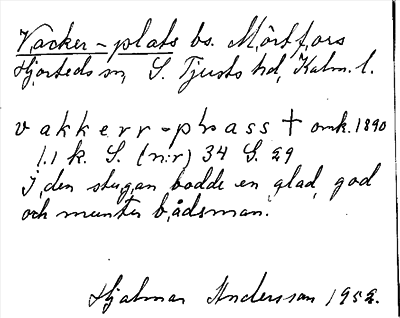 Vacker-plats bs. Mörtfors
Hjorteds sn, S. Tjusts hd, Kalm. l.
vakkerr-plass † omk. 1890
1.1 k. S. (nr) 34 G. 29
I den stugan bodde en glad, god
och munter båtsman.
Hjalmar Andersson 1952.